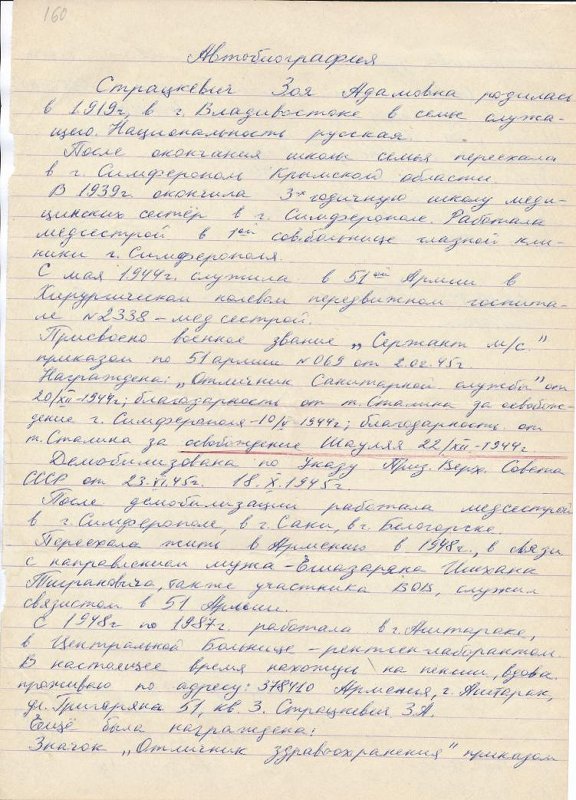 160
Автобиография
Страцкевич Зоя Адамовна родилась
в 1919г. в г. Владивостоке в семье служа-
щих. Национальность русская.
После окончания школы семья переехала
в г. Симферополь Крымской области.
В 1939г. окончила 3х годичную школу меди-
цинских сестёр в г. Симферополе. Работала
медсестрой в 1ой сов.больнице глазной кли-
ники г. Симферополя.
С мая 1944г. служила в 51ой Армии в
Хирургическом полевом передвижном госпита-
ле №2338 – медсестрой.
Присвоено военное звание „Сержант м/с."
приказом по 51 армии №069 от 2.02.45г.
Награждена: „Отличник Санитарной службы" от
20/XII-1944г; благодарность от т.Сталина за освобож-
дение г. Симферополя-10/V-1944г; благодарность от
т.Сталина за освобождение Шауляя 22/XII-1944г
Демобилизована по Указу През.Верх. Совета
СССР от 23.VI.45г. 18.X.1945г
После демобилизации работала медсестрой
в г. Симферополе, в г. Саки, в г. Белогорске.
Переехала жить в Армению в 1948г., в связи
с направлением мужа – Ишхана
Тиграновича, также участника ВОВ, служил
связистом в 51 Армии.
С 1948г по 1987г. работала в г. Аштараке,
в Центральной Больнице – рентген-лаборантом
В настоящее время нахожусь на пенсии, вдова.
проживаю по адресу: 378410 Армения, г. Аштарак,
ул. Григоряна 51, кв. 3. Страцкевич З.А.
Ещё была награждена:
Значок „Отличник здравоохранения" приказом